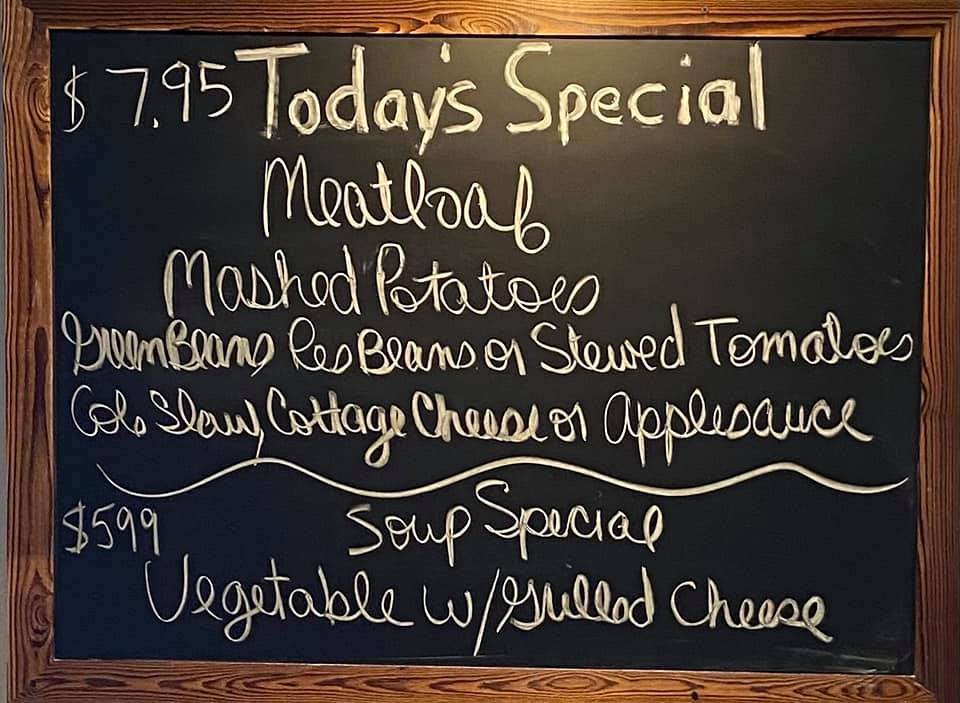 $ 7.95 Today's Special
Meatloaf
Mashed Potatoes
Green Beans Pea Beans or Stewed Tomatoes
Cole Slaw, Cottage Cheese or Applesauce
$599 Soup Special
Vegetable w/Grilled Cheese